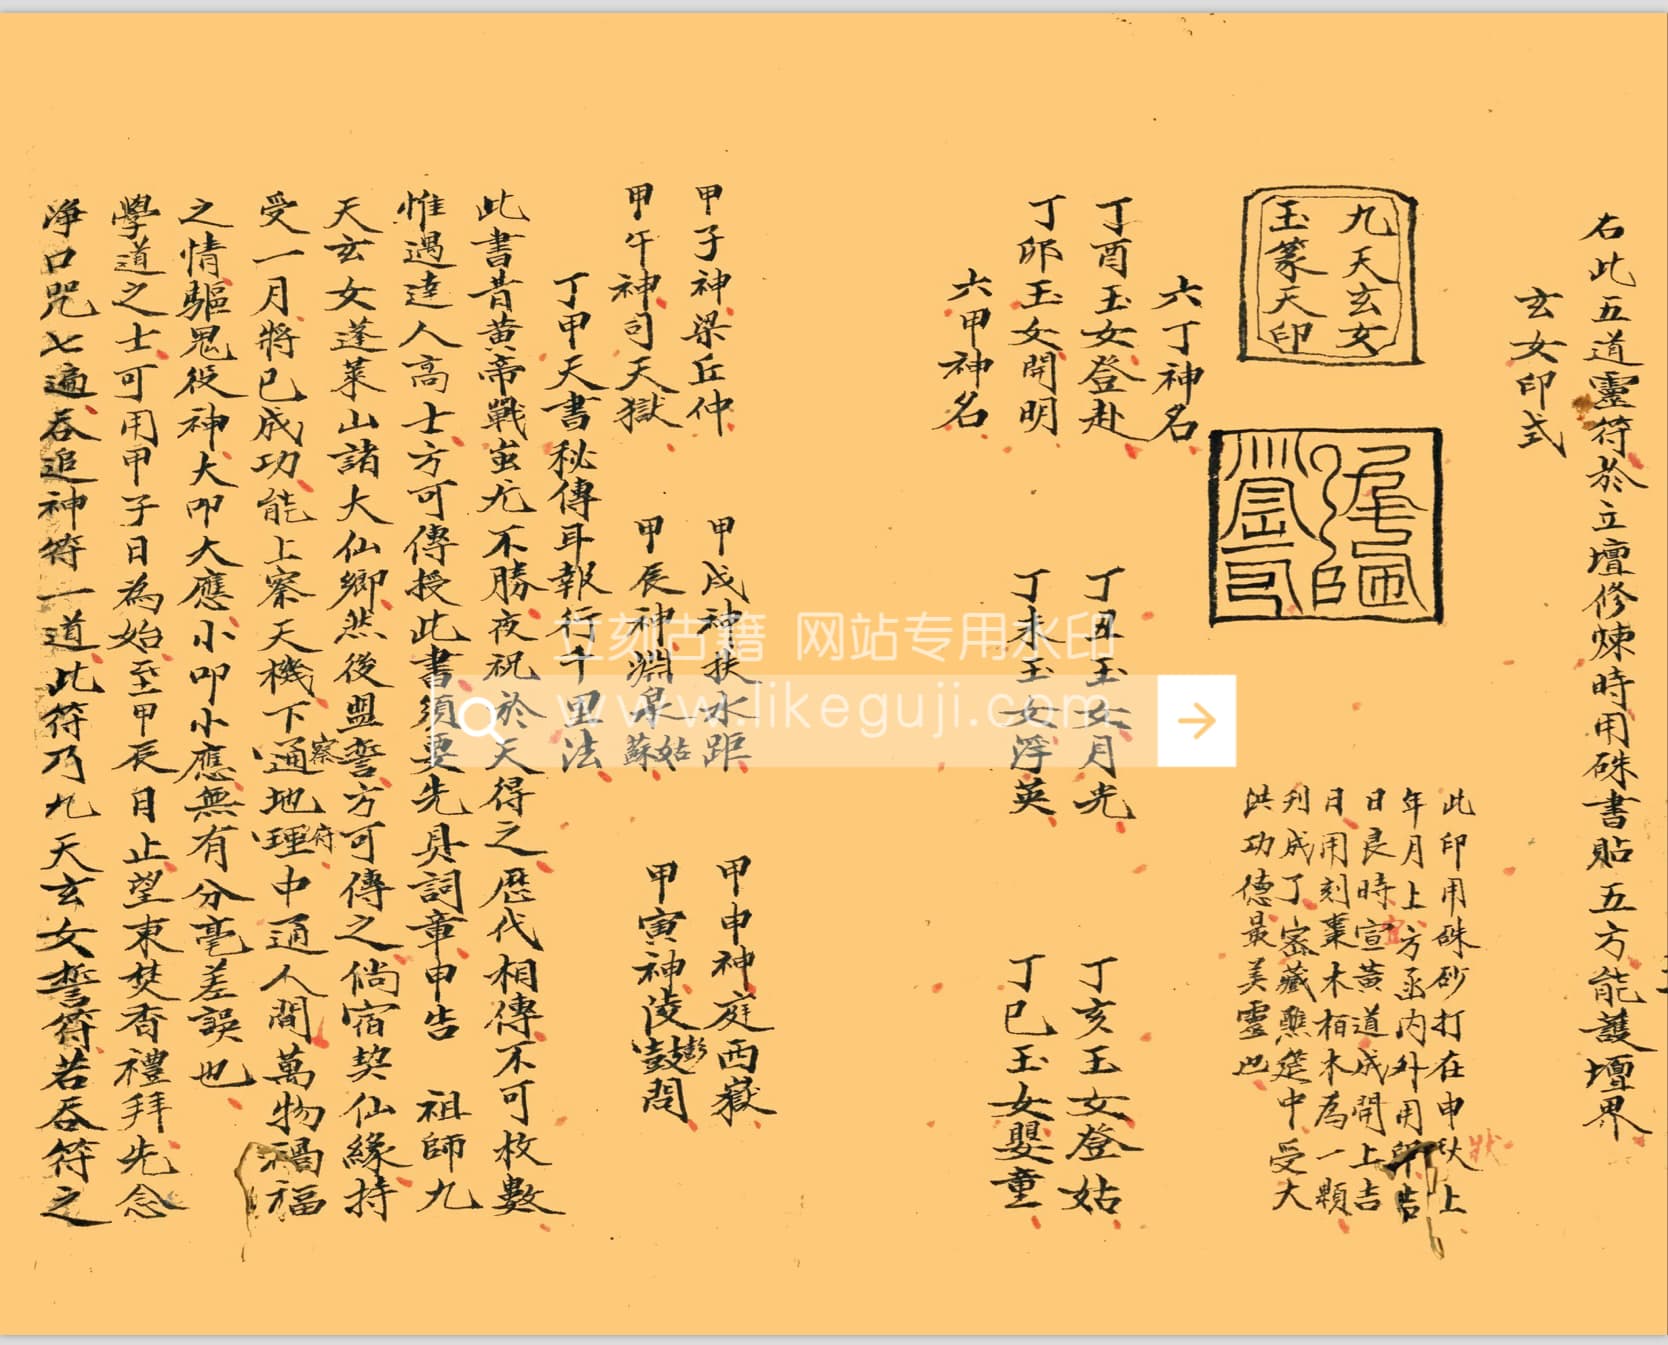 右此五道靈符於立壇修煉時用硃書貼五方能護壇界
玄女印式
九天玄女
玉篆天印
此印用硃砂打在申狀上
年月上方函内外用
日良時宣黃道成開上吉
宜
狀
日用刻棗木栢木為一顆
刋成了密藏壇中受大
洪功德最美靈也
六丁神名
丁酉玉女登赴
丁丑玉女月光
丁亥玉女登姑
丁卯玉女開明
丁未玉女浮英
丁巳玉女嬰童
六甲神名
甲子神梁丘仲
甲戌神扶水距
甲申神庭西嶽
甲午神司天獄
甲辰神淵泉姑蘇
甲寅神陵鼓閏
彭
丁甲天書秘傳耳報行千里法
此書昔黃帝戰蚩尤不勝夜祝於天得之歷代相傳不可枚數
惟遇達人高士方可傳授此書須要先具詞章申告 祖師九
天玄女蓬萊山諸大仙鄉然後盟誓方可傳之倘宿契仙緣持
受一月將已成功能上察天機下通地理中通人間萬物禍福
察
府
之情驅鬼役神大叩大應小叩小應無有分毫差誤也
學道之士可用甲子日為始至甲辰日止望東焚香禮拜先念
淨口咒七遍吞追神符一道此符乃九天玄女誓符若吞符之
立刻古籍 网站专用水印
www.likeguji.com